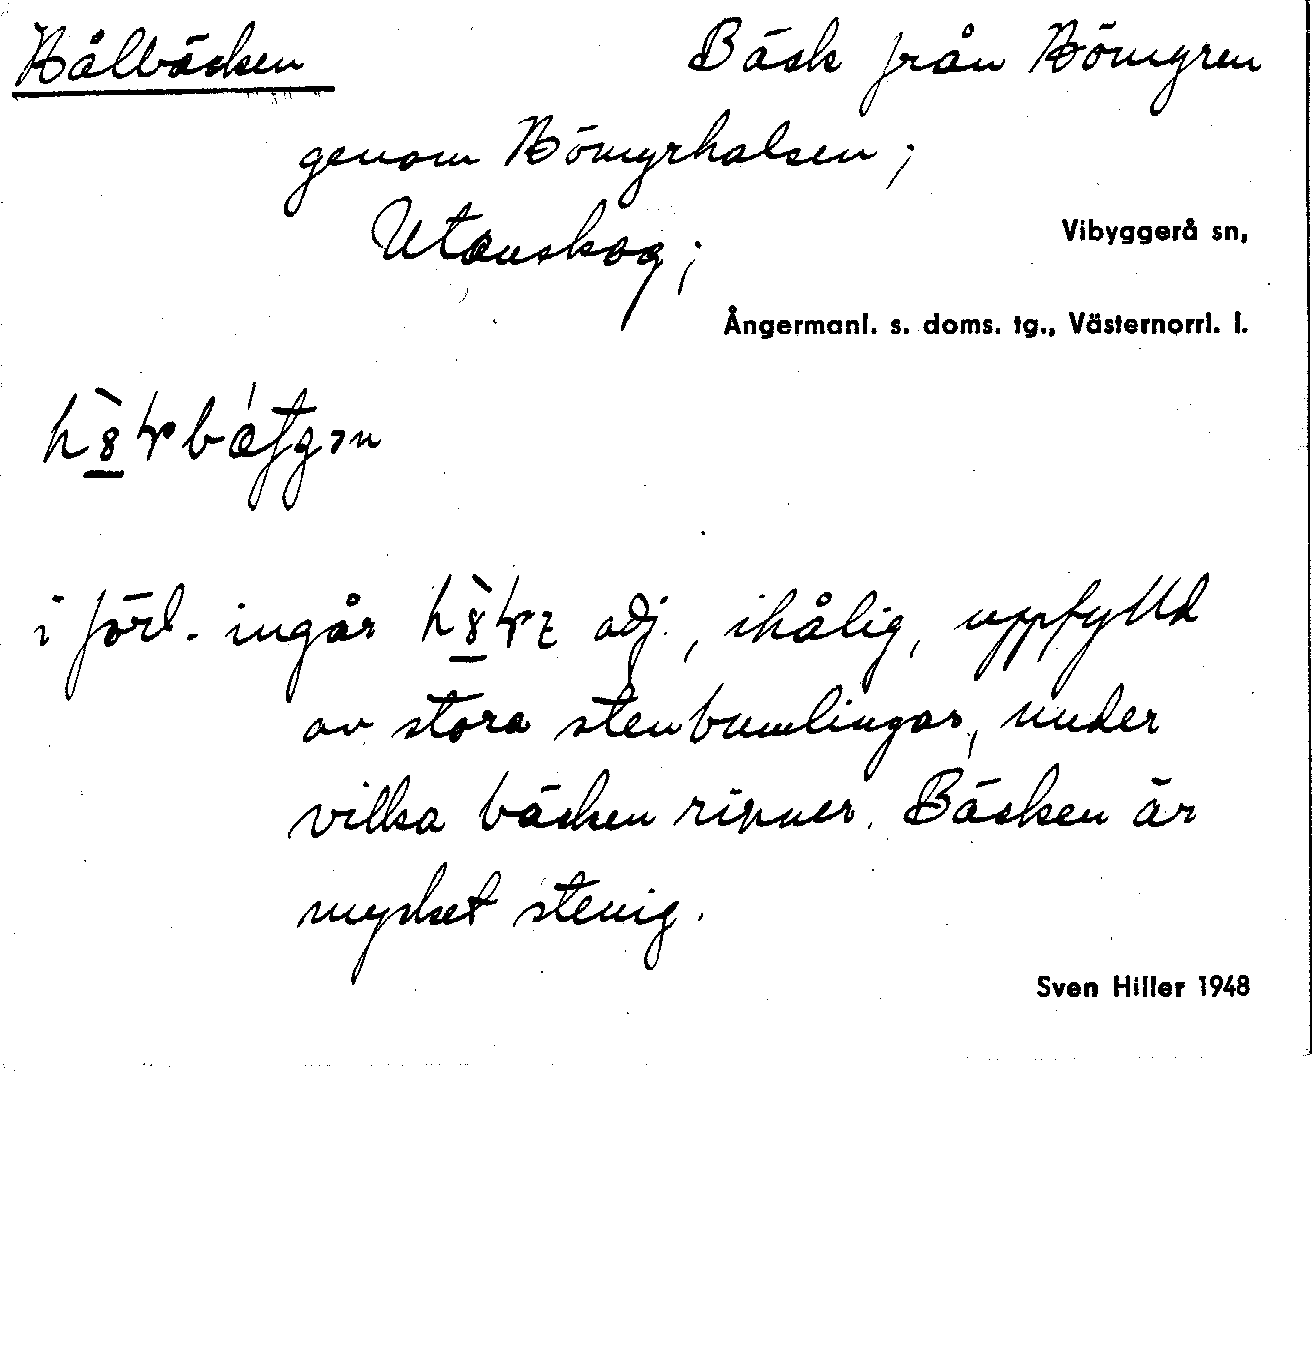 Hålbäcken Bäck från Hömyren
genom Hömyrhalsen;
Utanskog; Vibyggerå sn,
Ångermanl. s. doms. tg., Västernorrl. l.
i förl. ingår adj., ihålig, uppfylld
av stora stenbumlingar, under
vilka bäcken rinner. Bäcken är
mycket stenig.
Sven Hiller 1948